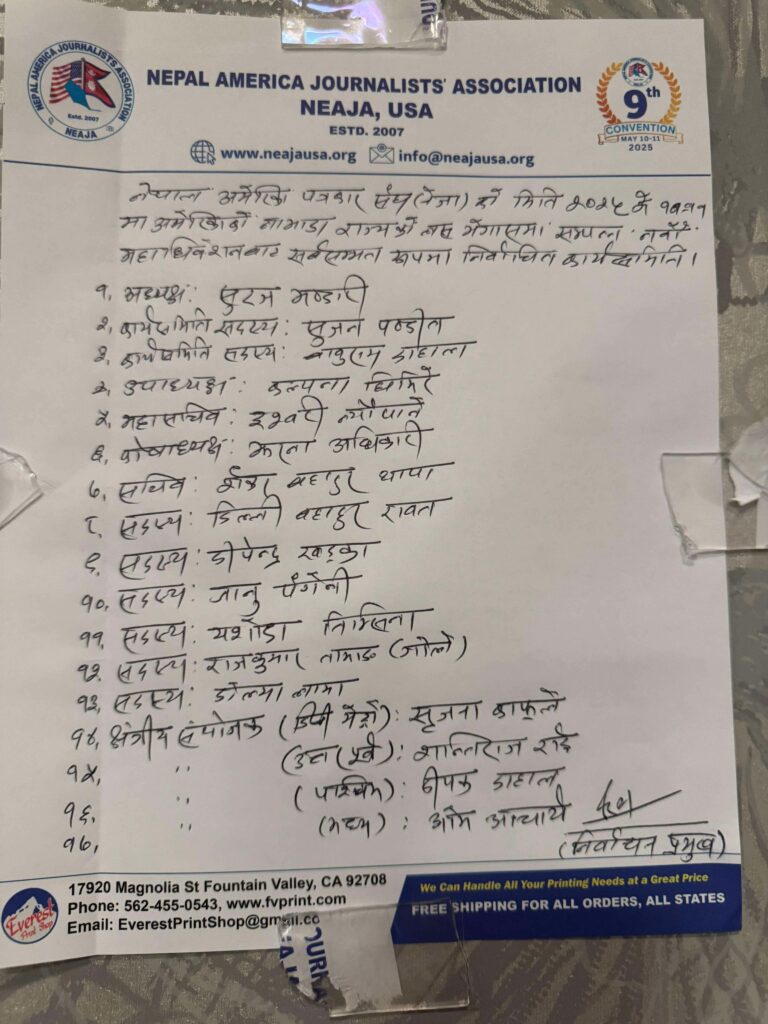 NEPAL AMERICA JOURNALISTS ASSOCIATION
NEAJA
Estd. 2007
NEPAL AMERICA JOURNALISTS' ASSOCIATION
NEAJA, USA
ESTD. 2007
www.neajausa.org info@neajausa.org
9th
CONVENTION
MAY 10-11
2025
नेपाल अमेरिका पत्रकार संघ (नेजा) को मिति २०२५ मे १०र११
मा अमेरिकाको नाभाडा राज्यको लास भेगासमा सम्पन्न नवौँ
महाधिवेशनबाट सर्वसम्मत रूपमा निर्वाचित कार्यसमिति।
१, अध्यक्ष: सुरज भण्डारी
२, कार्यसमिति सदस्य: सुजन पण्डीत
३, कार्यसमिति सदस्य: बाबुराम दाहाल
४, उपाध्यक्ष: कल्पना घिमिरे
५, महासचिव: ईश्वरी न्यौपाने
६, कोषाध्यक्ष: झरना अधिकारी
७, सचिव: शंकर बहादुर थापा
८ सदस्य: डिल्ली बहादुर रावत
९, सदस्य: दीपेन्द्र खड्का
१०, सदस्य: जानु पंगेनी
११, सदस्य: यशोदा तिम्सिना
१२, सदस्य: राजकुमार तामाङ (जोले)
१३, सदस्य: डोल्मा लामा
१४, क्षेत्रीय संयोजक (डिसी मेट्रो): सृजना काफ्ले
१५, ,, (उत्तर पूर्व): शान्तिराज राई
१६, ,, (पश्चिम): दीपक दाहाल
१७, ,, (मध्य): ओम आचार्य
(निर्वाचन प्रमुख)
Everest
Print Shop
17920 Magnolia St Fountain Valley, CA 92708
Phone: 562-455-0543, www.fvprint.com
Email: EverestPrintShop@gmail.co
We Can Handle All Your Printing Needs at a Great Price
FREE SHIPPING FOR ALL ORDERS, ALL STATES